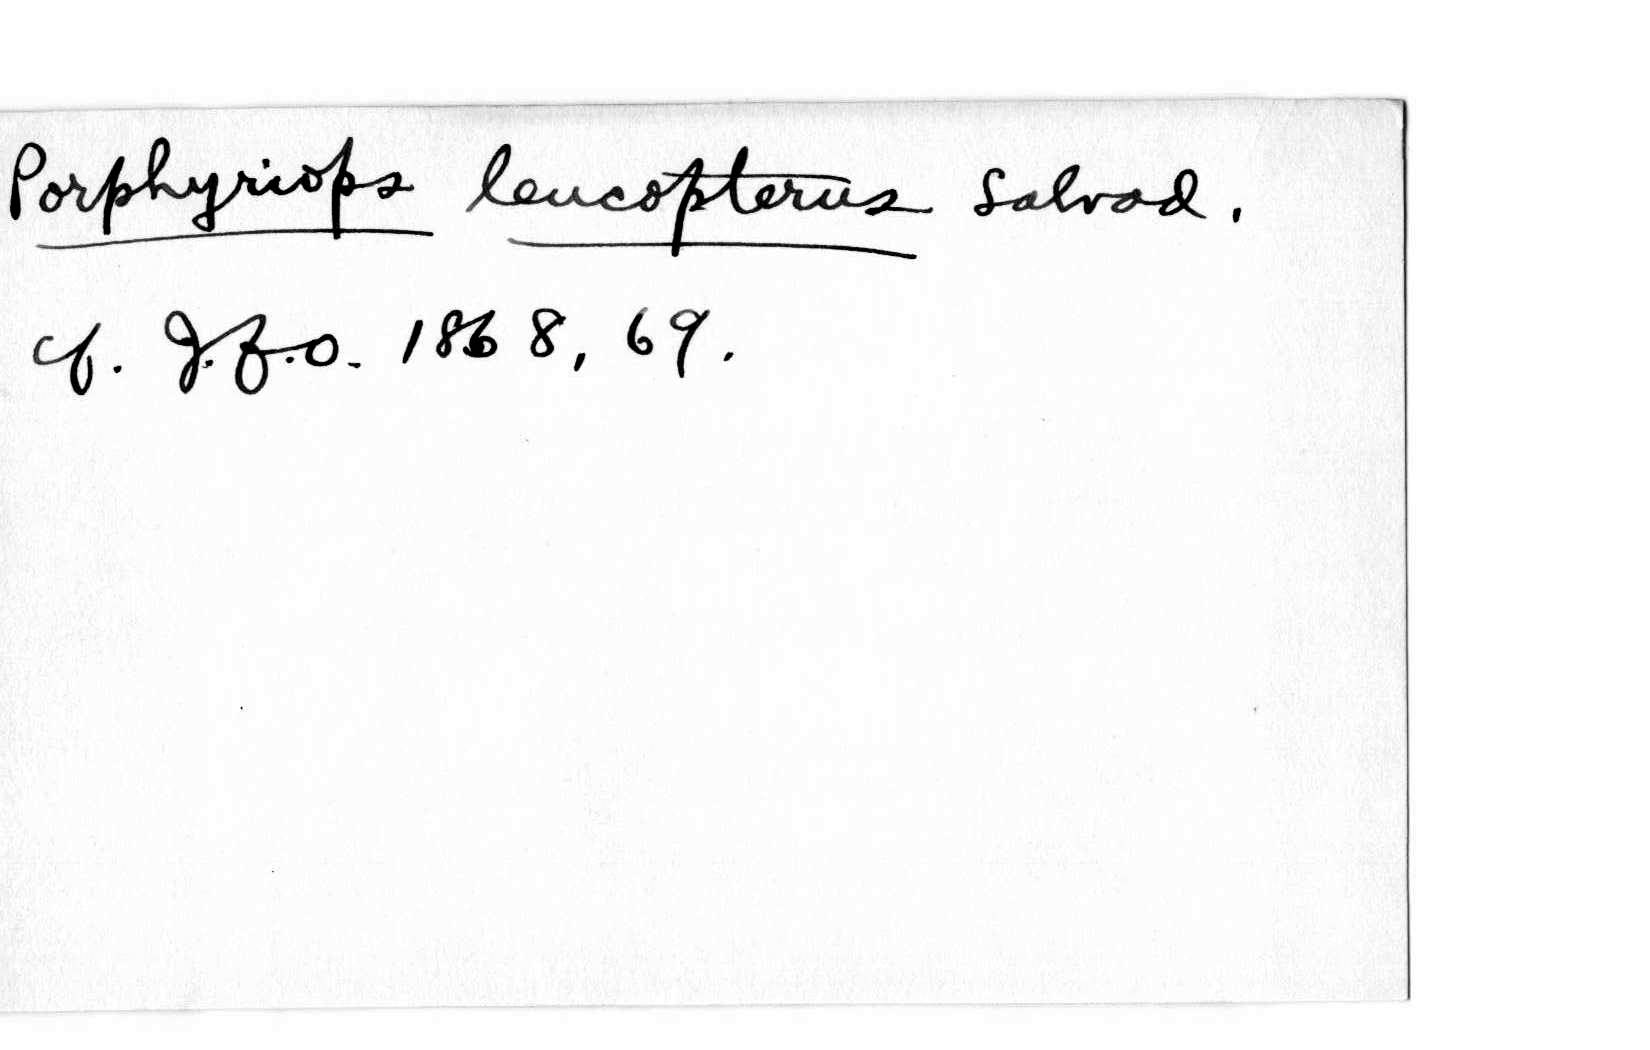 Porphyriops leucopterus Salvad.
cf. J.f.O. 1868, 69.